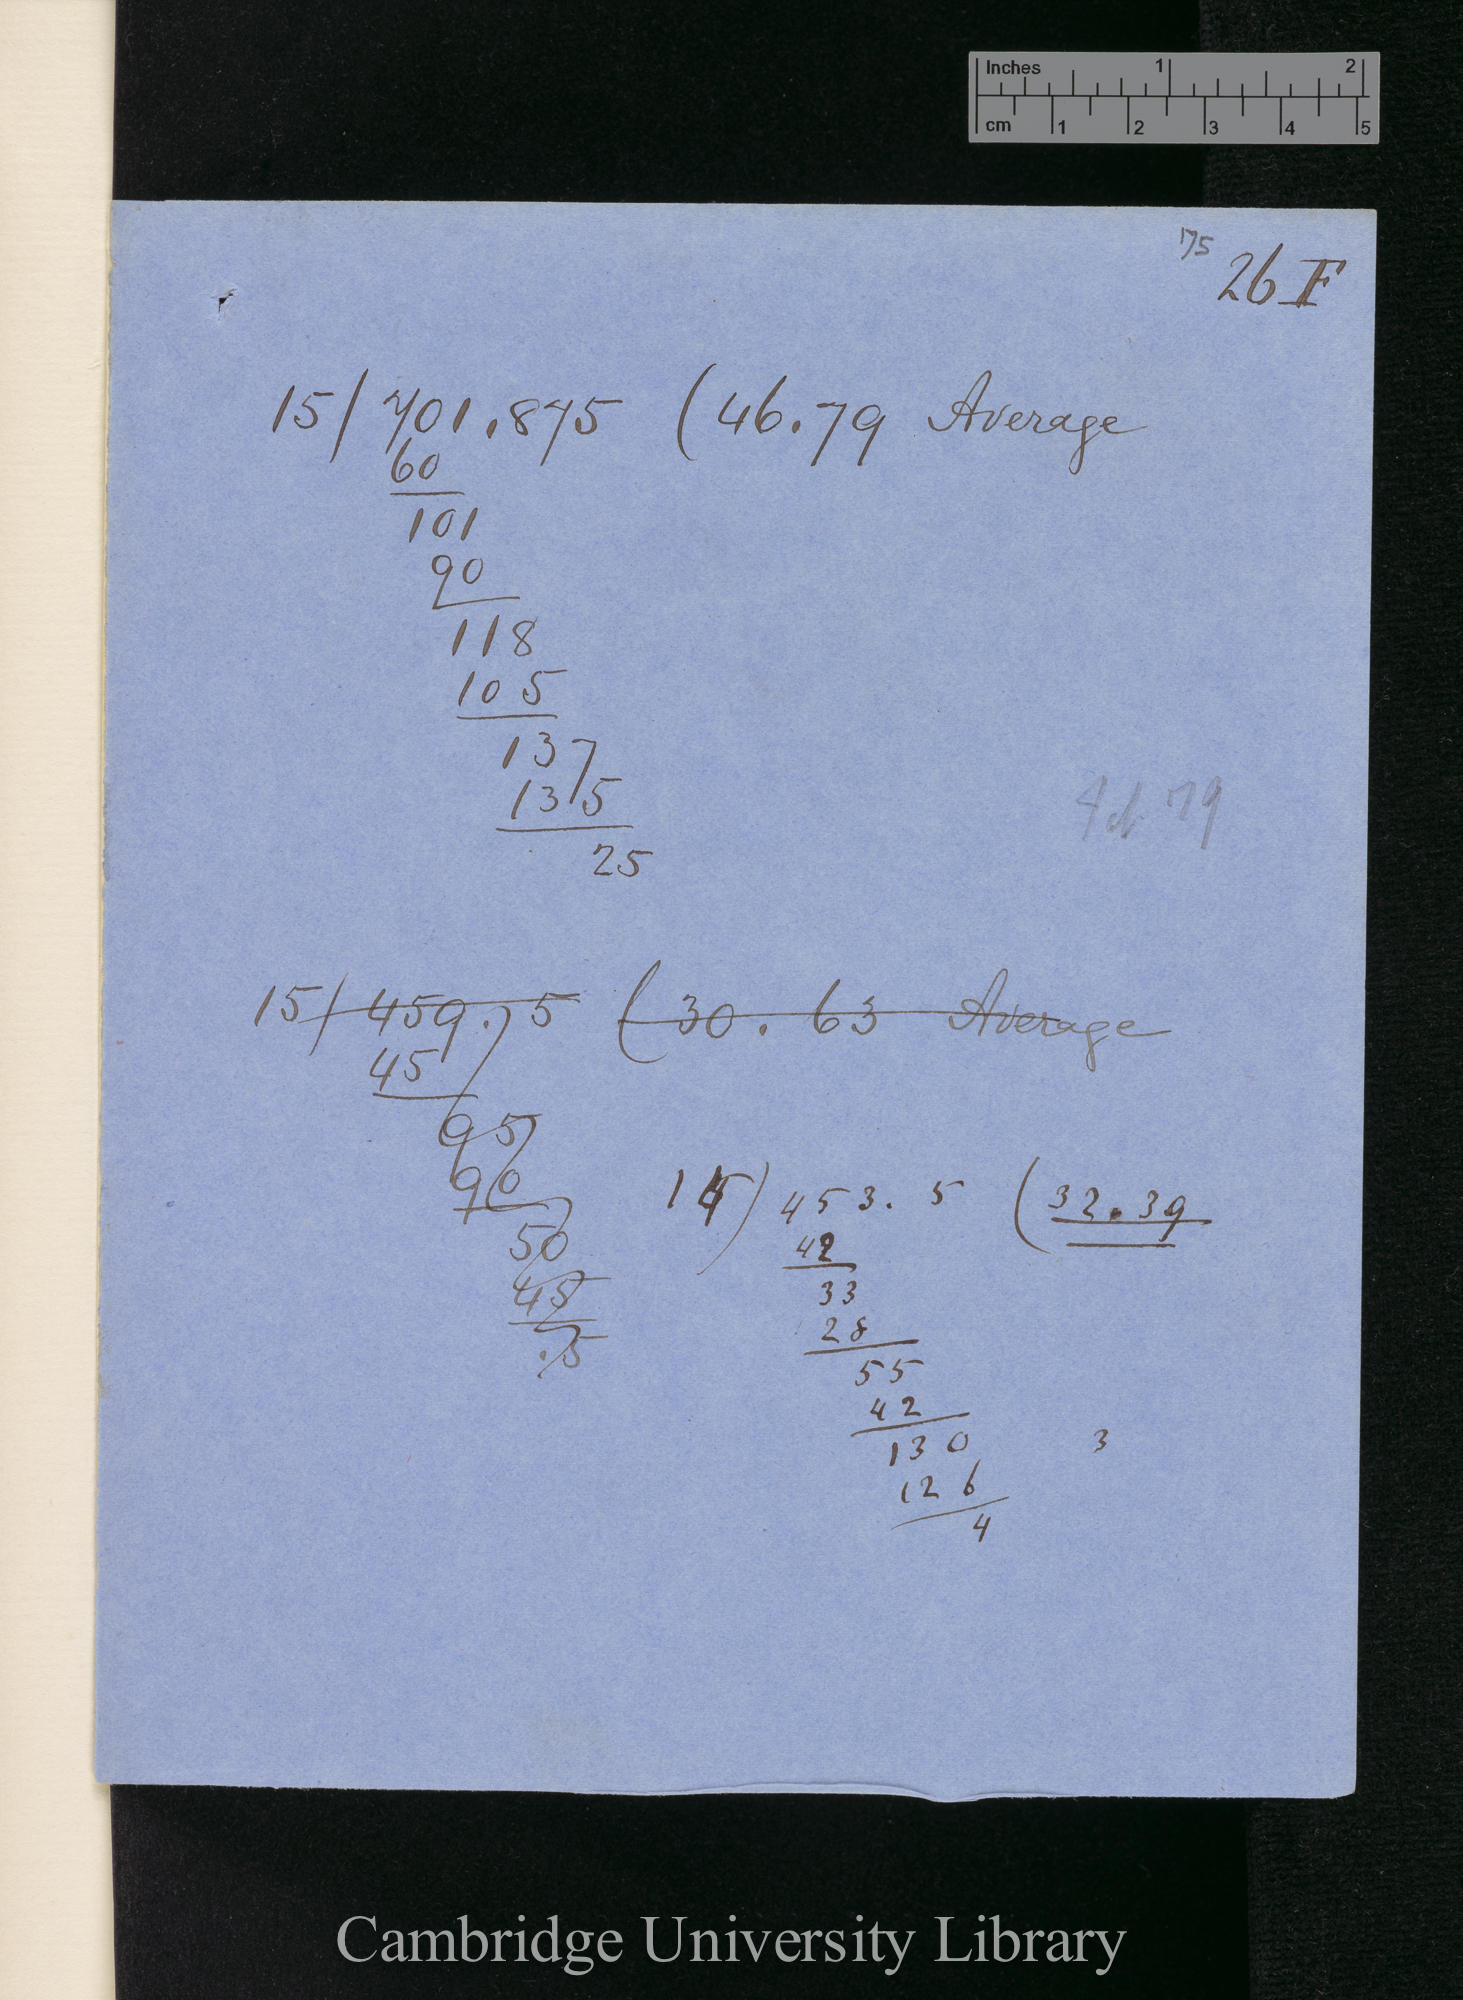 Inches 1 2
cm 1 2 3 4 5
75
26 F
15/ 701.875 (46.79 Average
60
101
90
118
105
137
135
25
79
15/ 459.5 (30.63 Average
45
95
90
50
45
.5
14) 453.5 (32.39
42
33
28
55
42
130 3
126
4
Cambridge University Library